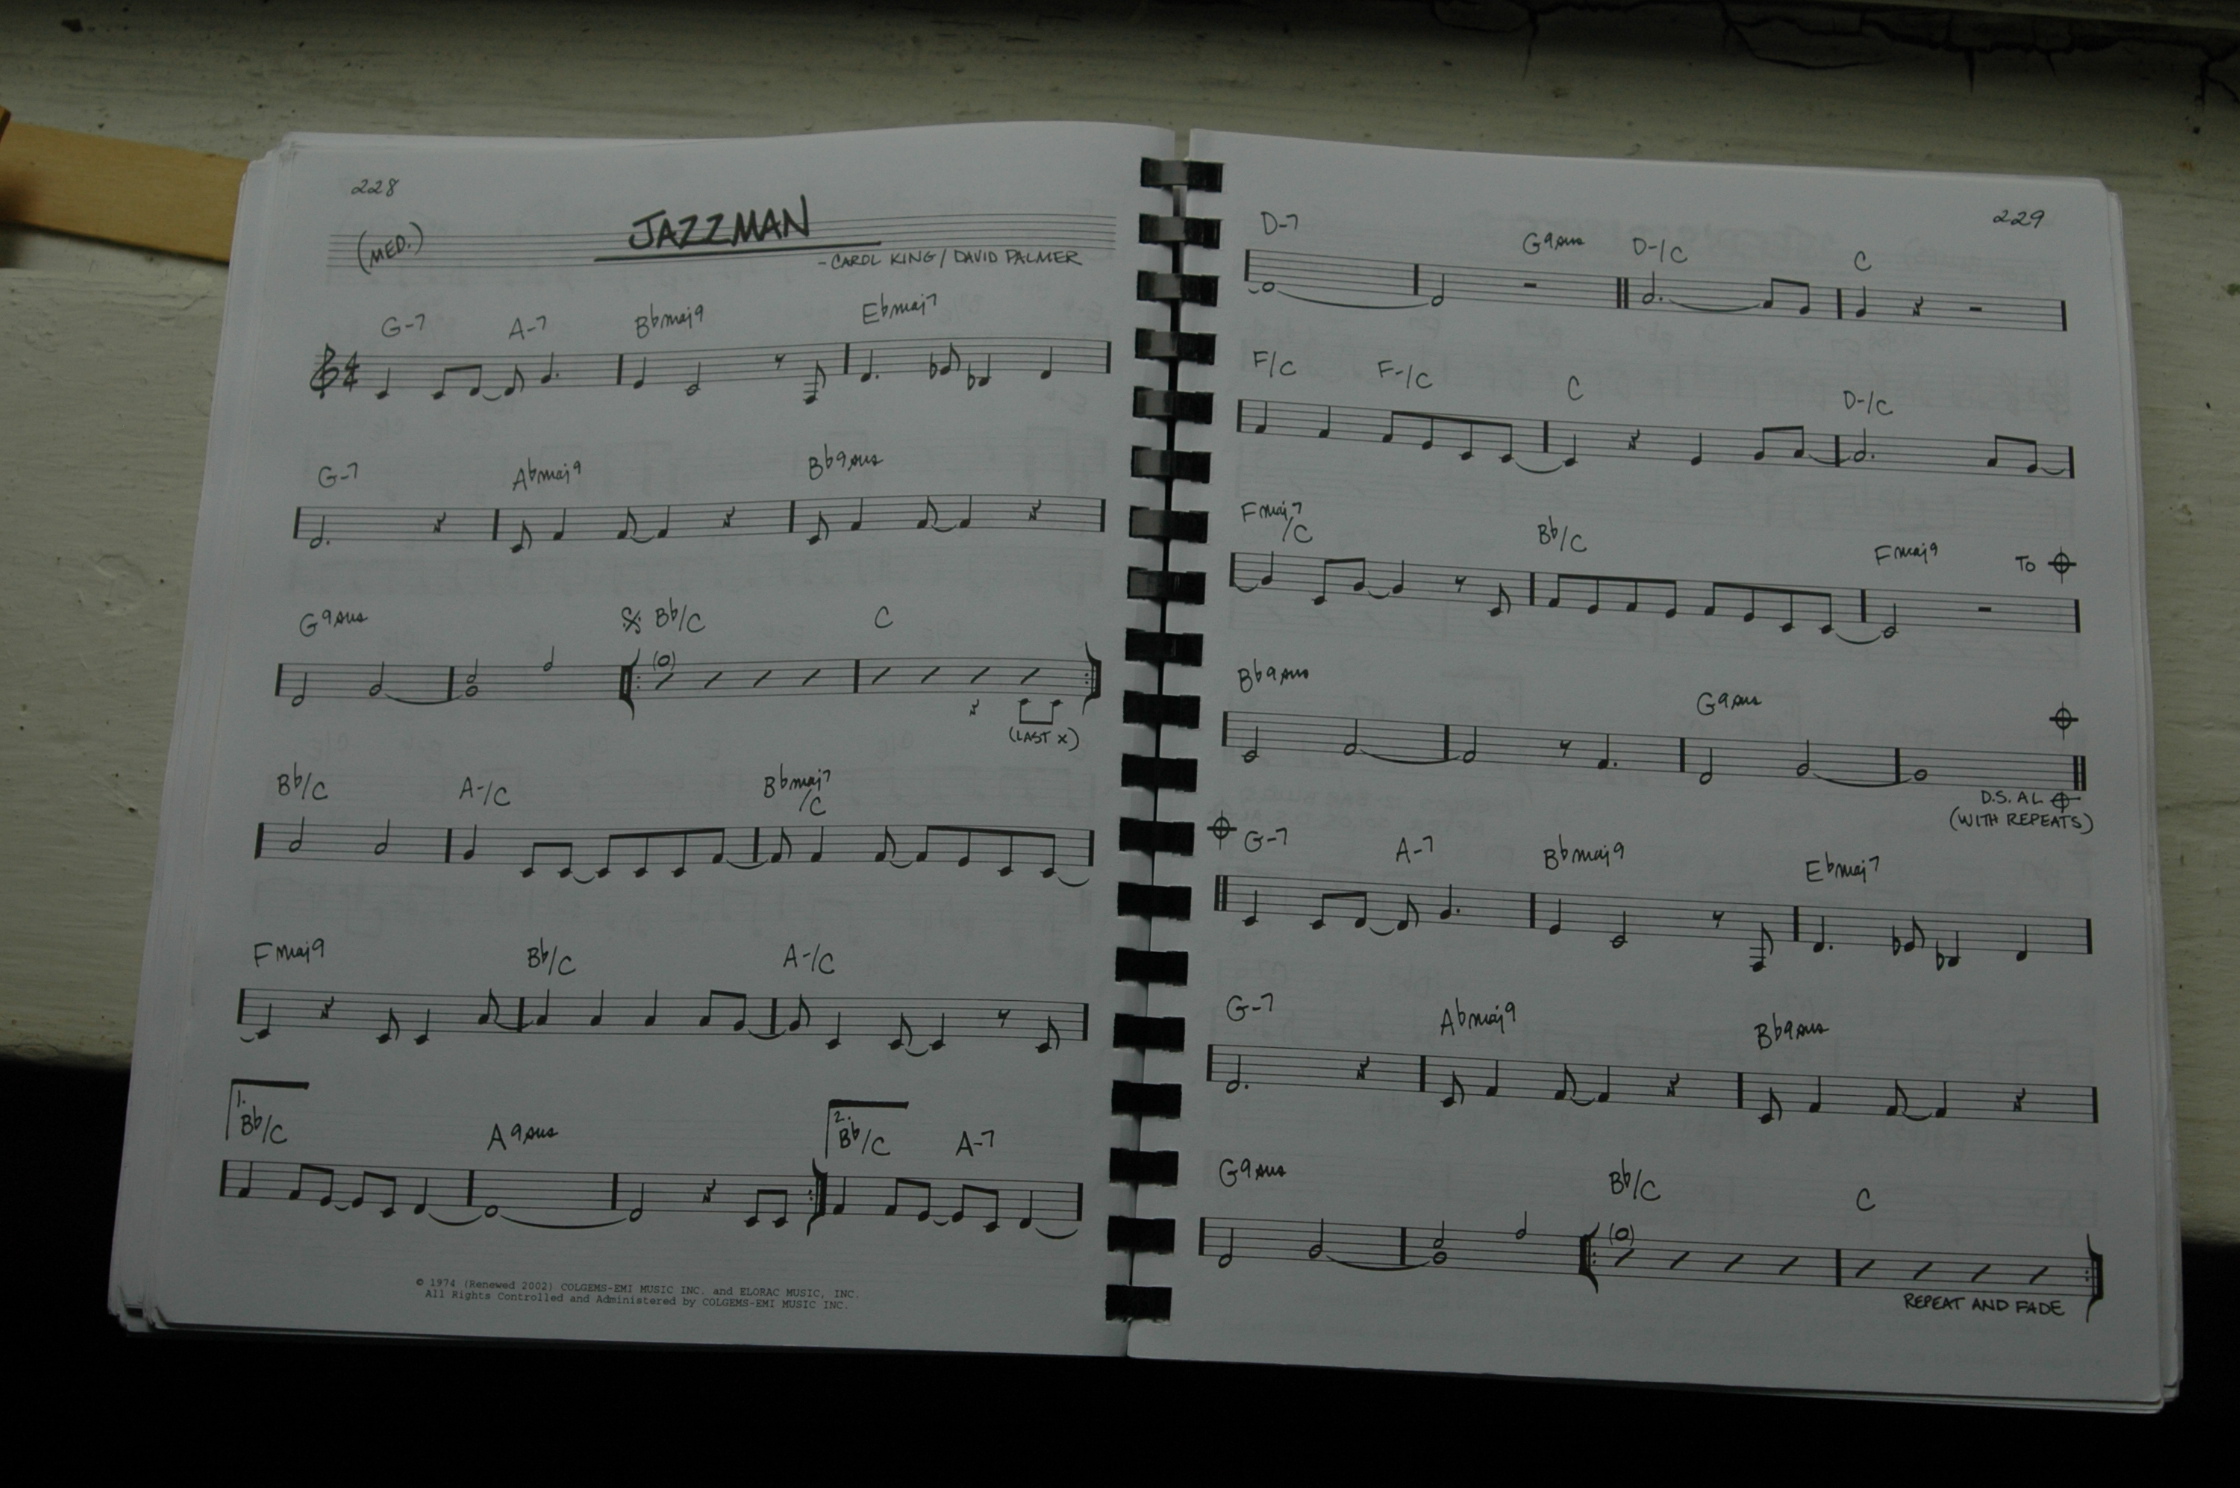 228
JAZZMAN
(MED.)
- CAROL KING / DAVID PALMER
G-7 A-7 Bbmaj9 Ebmaj7
G-7 Abmaj9 Bb9sus
G9sus Bb/C C
(LAST X)
Bb/C A-/C Bbmaj7/C
Fmaj9 Bb/C A-/C
1. 2.
Bb/C A9sus Bb/C A-7
© 1974 (Renewed 2002) COLGEMS-EMI MUSIC INC. and ELORAC MUSIC, INC.
All Rights Controlled and Administered by COLGEMS-EMI MUSIC INC.
229
D-7 G9sus D-/C C
F/C F-/C C D-/C
Fmaj7/C Bb/C Fmaj9 TO
Bb9sus G9sus
D.S. AL
(WITH REPEATS)
G-7 A-7 Bbmaj9 Ebmaj7
G-7 Abmaj9 Bb9sus
G9sus Bb/C C
REPEAT AND FADE